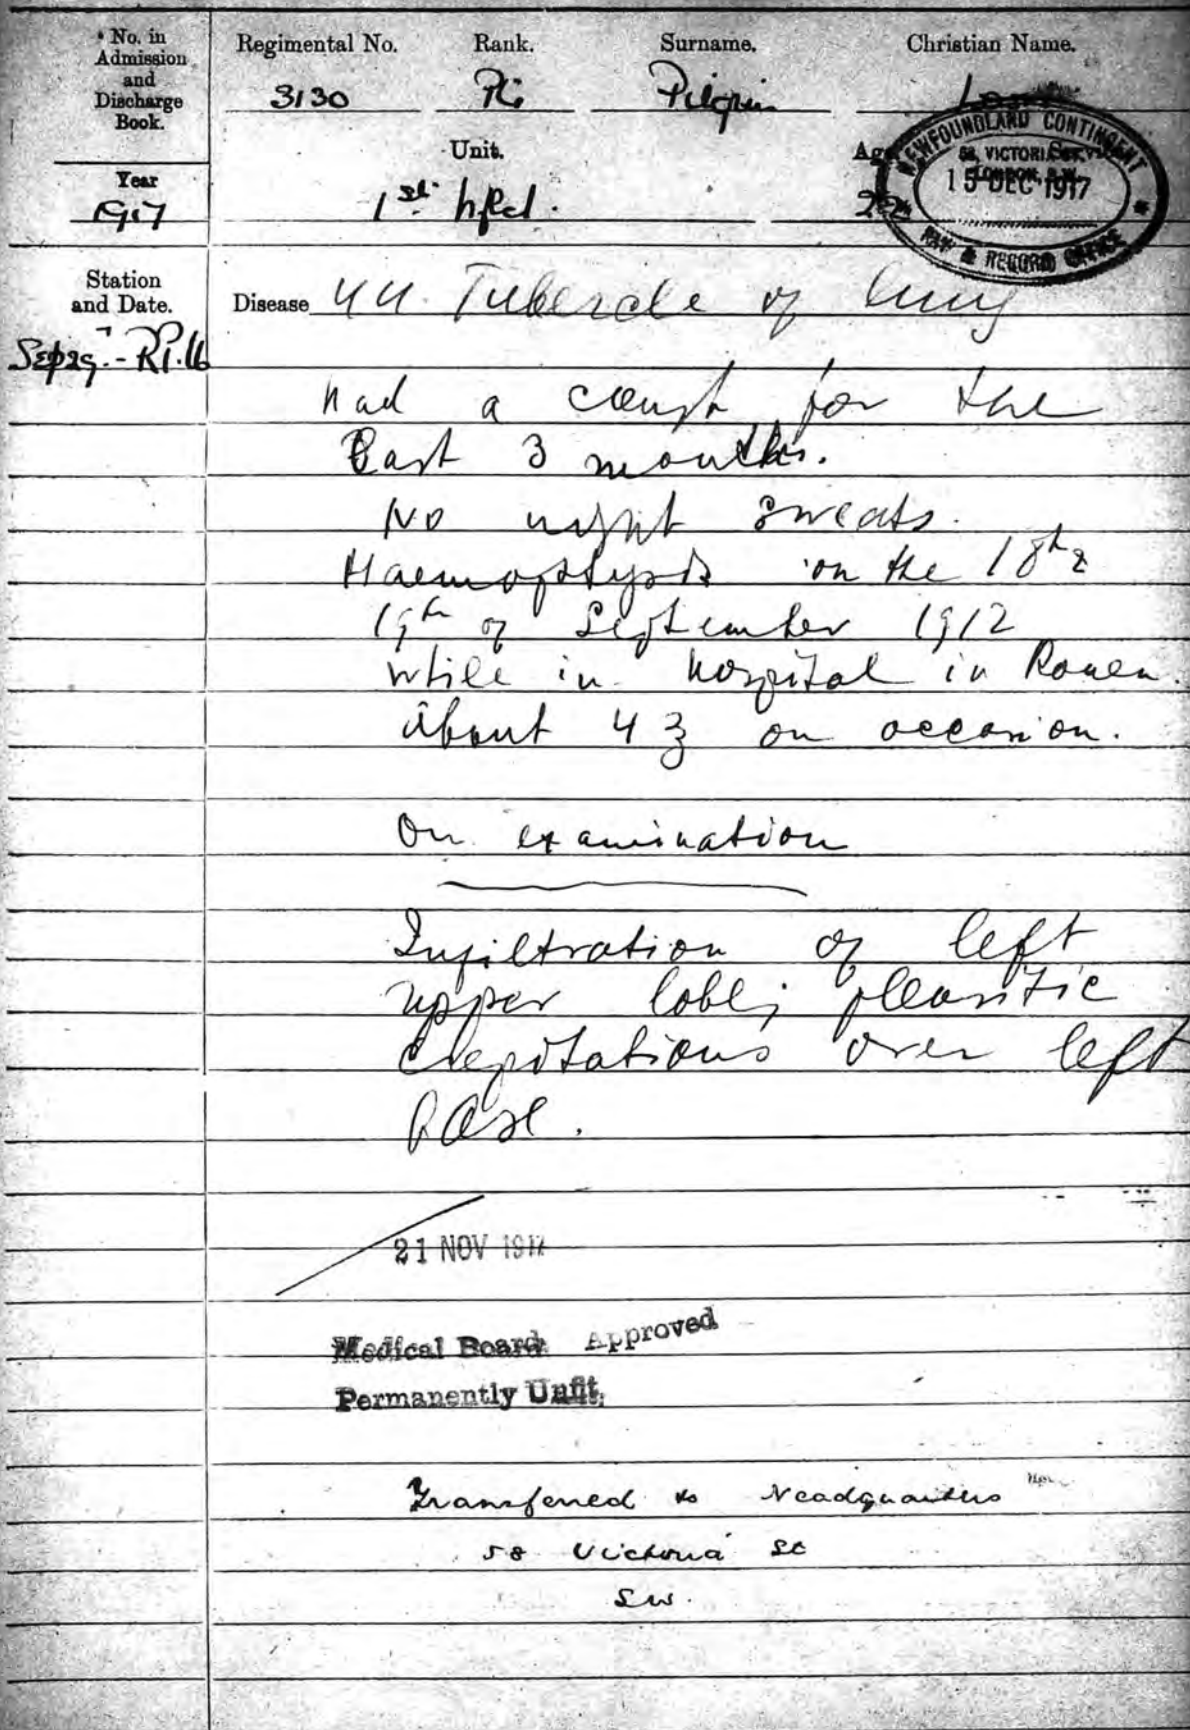 * No. in Admission and Discharge Book.
Regimental No. Rank. Surname. Christian Name.
3130 Pte Pilgrim
Unit. Age
Year
1917
1st Nfld. 22
NEWFOUNDLAND CONTINGENT
58, VICTORIA ST,
LONDON, S.W.
15 DEC 1917
PAY & RECORD OFFICE
Station and Date.
Disease Tubercle of lung
Sep 29.
Had a cough for the
last 3 months.
No night sweats.
Haemoptysis on the 18th &
19th of September 1917
while in hospital in Rouen.
About 4 ʒ on occasion.
On examination
Infiltration of left
upper lobe; pleuritic
crepitations over left
base.
21 NOV 1917
Medical Board Approved
Permanently Unfit.
Transferred to Headquarters
58 Victoria St
SW.